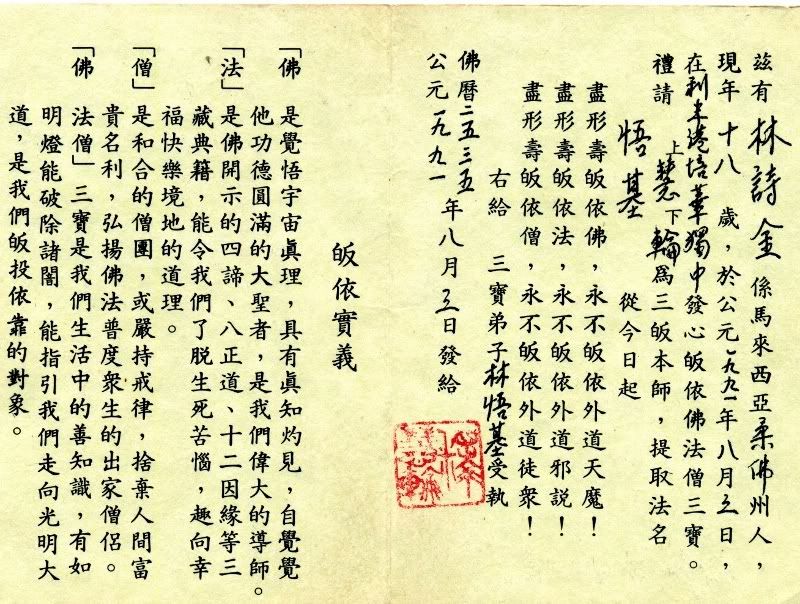 茲有 林詩金 係馬來西亞柔佛州人，
現年 十八 歲，於公元一九九一年八月三日，
在利未港培華獨中發心皈依佛法僧三寶。
禮請 上慧下輪為三皈本師，提取法名
悟基 從今日起
盡形壽皈依佛，永不皈依外道天魔！
盡形壽皈依法，永不皈依外道邪說！
盡形壽皈依僧，永不皈依外道徒衆！
右給 三寶弟子林悟基受執
佛曆二五三五
公元一九九一 年八月三日發給
皈依實義
「佛」是覺悟宇宙眞理，具有眞知灼見，自覺覺
他功德圓滿的大聖者，是我們偉大的導師。
「法」是佛開示的四諦、八正道、十二因緣等三
藏典籍，能令我們了脱生死苦惱，趣向幸
福快樂境地的道理。
「僧」是和合的僧團，或嚴持戒律，捨棄人間富
貴名利，弘揚佛法普度衆生的出家僧侶。
「佛法僧」三寶是我們生活中的善知識，有如
明燈能破除諸闇，能指引我們走向光明大
道，是我們皈投依靠的對象。